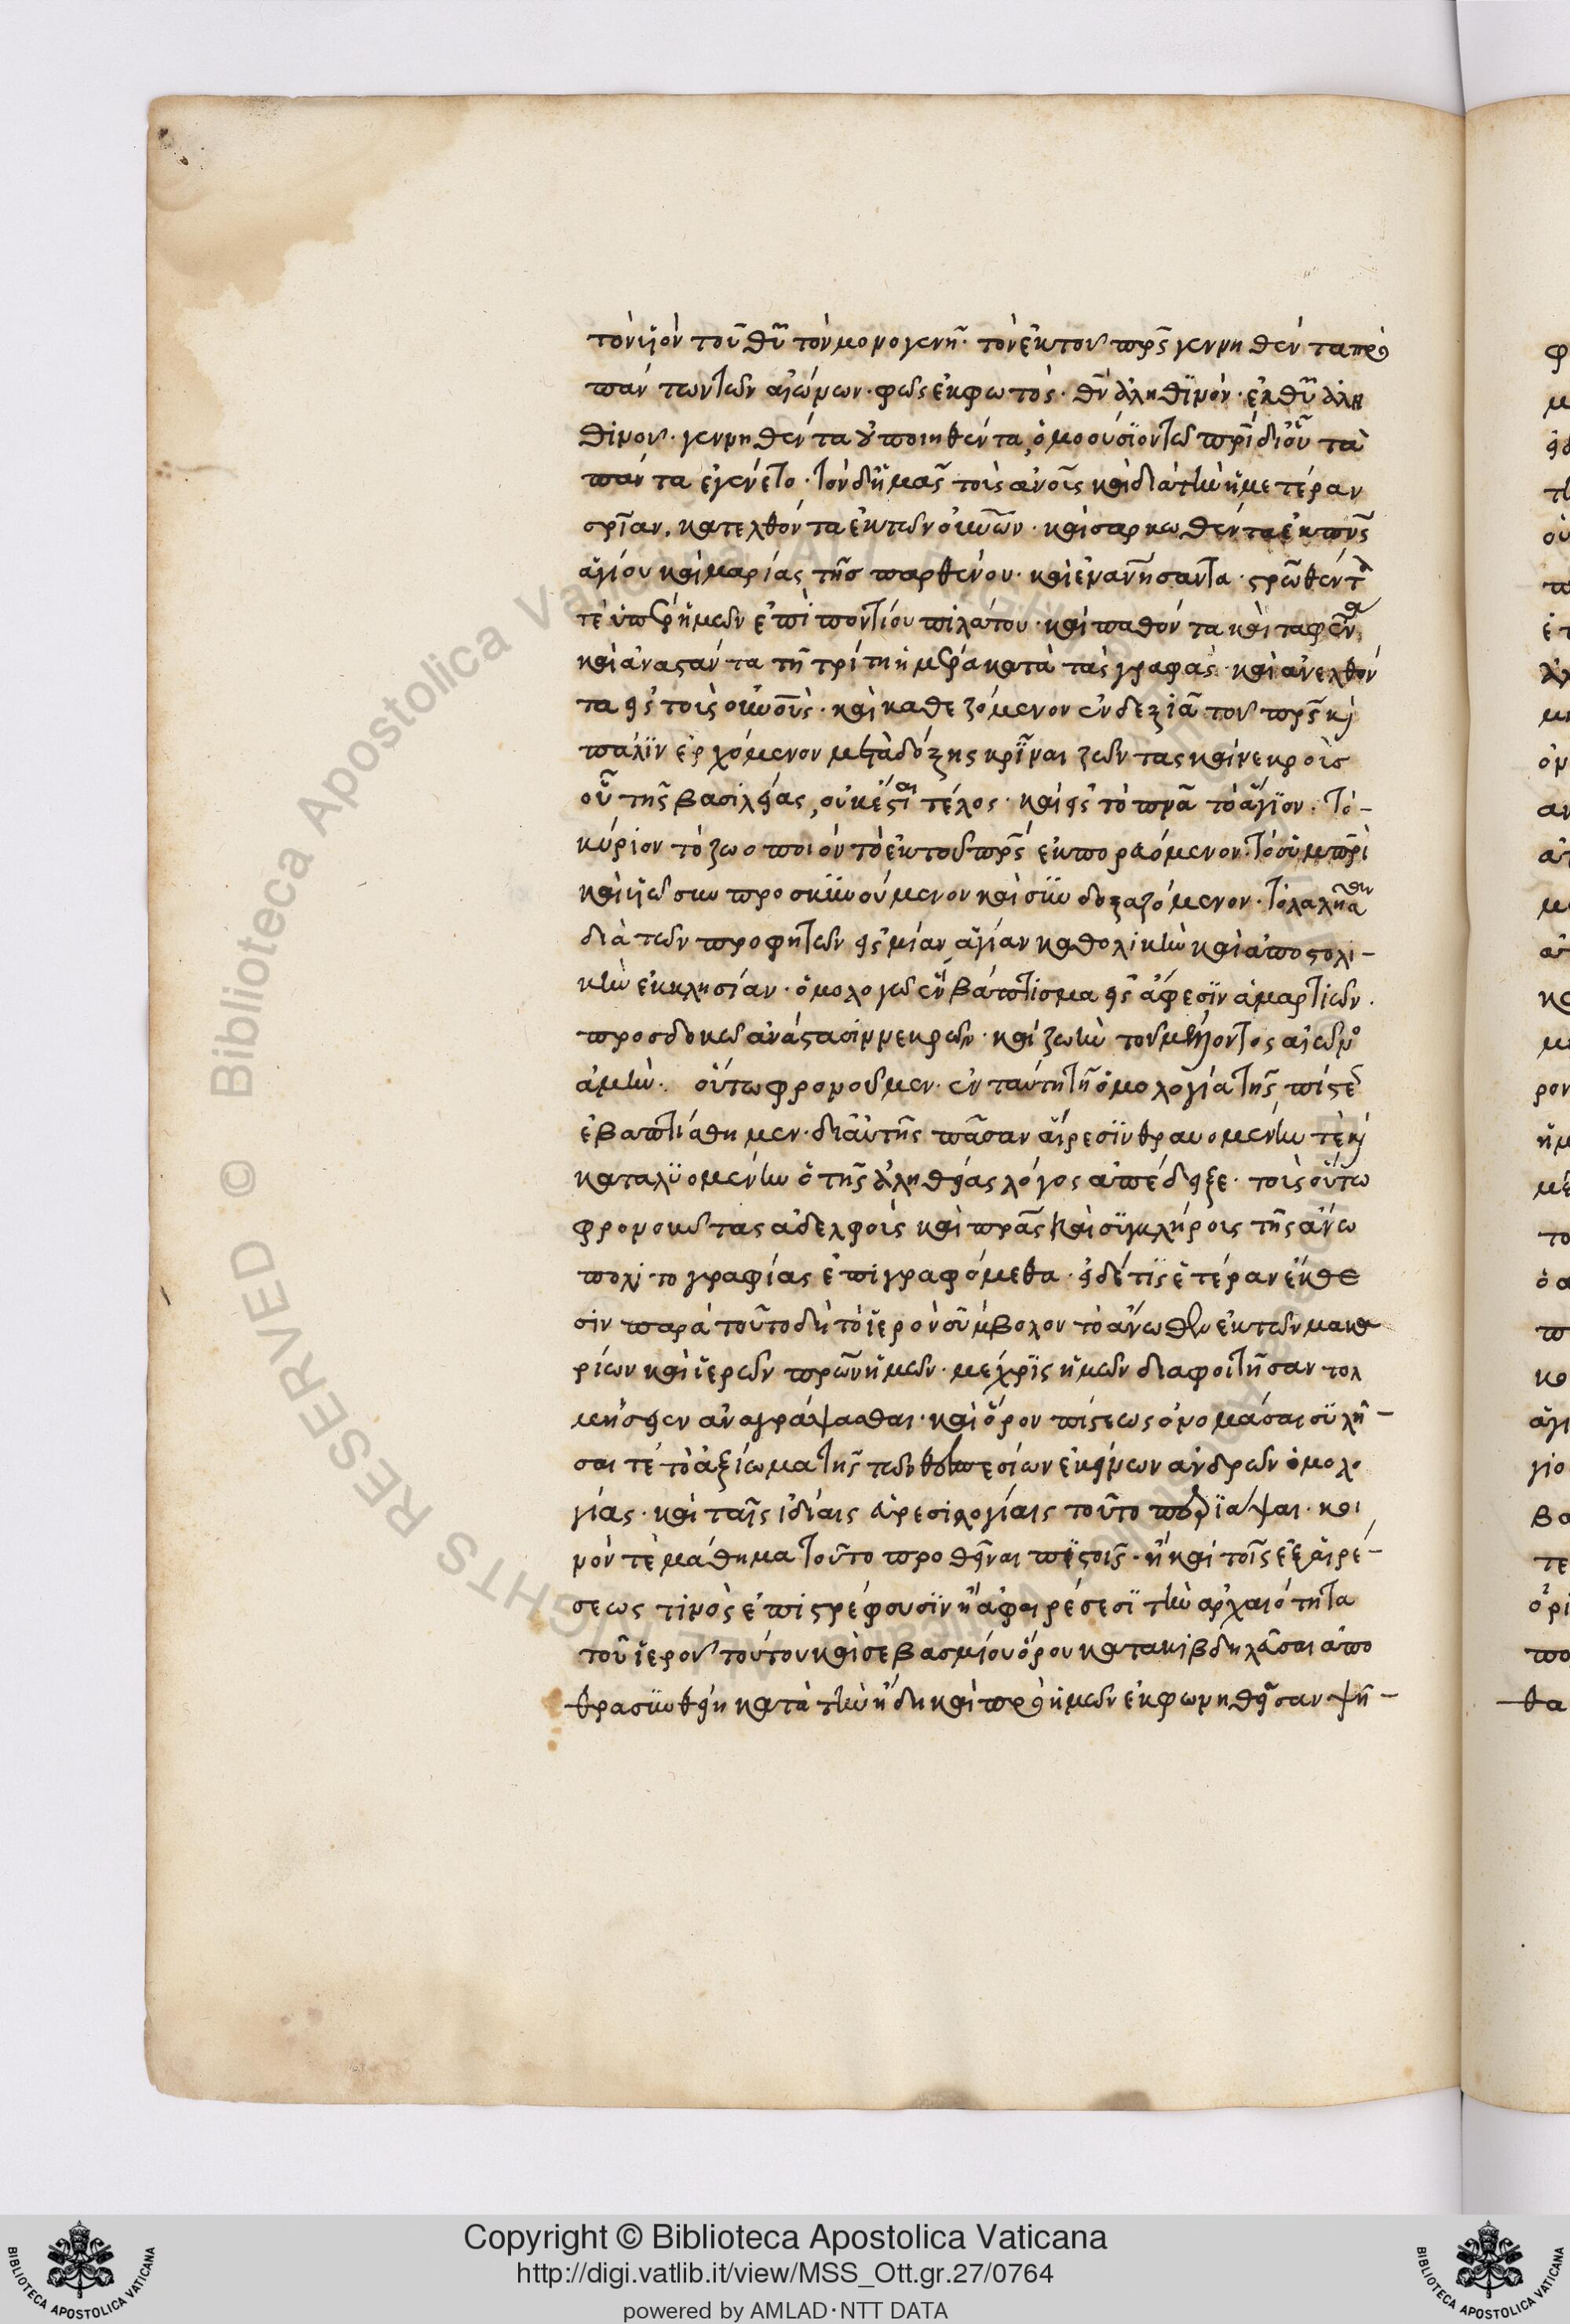 τὸν υἱὸν τοῦ θῦ τὸν μονογενῆ· τὸν ἐκ τοῦ πρς γεννηθέντα πρὸ
πάντων τῶν αἰώνων· φῶς ἐκ φωτός· θν ἀληθϊνὸν· ἐκ θῦ ἀλη
θινοῦ· γεννηθέντα οὐ ποιηθέντα, ὁμοούσϊον τῶ πρὶ δι' οὗ τὰ
πάντα ἐγένετο· τὸν δι' ἡμᾶς τοὺς ανους καὶ διὰ τὴν ἡμετέραν
σρίαν, κατελθόντα ἐκ τῶν οὐνῶν· καὶ σαρκωθέντα ἐκ πνς
ἁγίου καὶ μαρίας τῆς παρθένου· καὶ ἐνανησαντα· σρωθέντα
τὲ ὑπὲρ ἡμῶν ἐπὶ ποντίου πιλάτου· καὶ παθόντα καὶ ταφέντα,
καὶ ἀναστάντα τῆ τρίτη ἡμέρα κατὰ τὰς γραφὰς· καὶ ἀνελθόν
τα εἰς τοὺς οὐνοὺς· καὶ καθεζόμενον ἐν δεξιᾶ τοῦ πρς κὶ
πάλϊν ἐρχόμενον μετὰ δόξης κρῖναι ζῶντας καὶ νεκροὺς
οὗ τῆς βασιλείας, οὐκ ἔσται τέλος· καὶ εἰς τὸ πνα τὸ ἅγϊον· τὸ-
κύριον τὸ ζωοποιὸν τὸ ἐκ τοῦ πρς ἐκπορευόμενον· τὸ σὺμ πρὶ
καὶ υἱῶ συν προσκϋνούμενον καὶ σϋνδοξαζόμενον· τὸ λαλῆσαν
διὰ τῶν προφητῶν εἰς μίαν ἁγίαν καθολικὴν καὶ ἀποστολι-
κὴν ἐκκλησίαν· ὁμολογῶ ἓν βάπτισμα εἰς ἄφεσϊν ἁμαρτιῶν·
προσδοκῶ ἀνάστασιν νεκρῶν· καὶ ζωὴν τοῦ μέλλοντος αἰῶνο
ἀμὴν·. οὕτω φρονοῦμεν· ἐν ταύτη τῆ ὁμολογία τῆς πίστε
ἐβαπτίσθημεν· δι' αὐτῆς πᾶσαν αἵρεσϊν θραυομένην τὲ κὶ
καταλϋομένην ὁ τῆς ἀληθείας λόγος ἀπέδειξε· τοὺς οὕτω
φρονοῦντας ἀδελφοὺς καὶ πρας καὶ σϋγκλήρους τῆς ἄνω
πολιτογραφίας ἐπιγραφόμεθα· εἰ δέ τϊς ἑτέραν ἔκθε
σιν παρὰ τοῦτο δὴ τὸ ἱερὸν σύμβολον τὸ ἄνωθεν ἐκ τῶν μακα
ρίων καὶ ἱερῶν πρων ἡμῶν· μέχρϊς ἡμῶν διαφοιτῆσαν τολ
μήσειεν ἀναγράψασθαι· καὶ ὅρον πίστεως ὀνομάσαι σϋλῆ-
σαι τέ τὸ ἀξίωμα τῆς τῶν θεσπεσίων ἐκείνων ἀνδρῶν ὁμολο
γίας· καὶ ταῖς ἰδίαις εὑρεσιλογίαις τοῦτο περϊάψαι· κοι
νὸν τὲ μάθημα τοῦτο προθεῖναι πϊστοῖς· ἢ καὶ τοῖς ἐξ αἱρέ-
σεως τινὸς ἐπιστρέφουσϊν ἢ ἀφαιρέσεσϊ τὴν ἀρχαιότητα
τοῦ ἱεροῦ τούτου καὶ σεβασμίου ὅρου κατακιβδηλεῦσαι ἀπο
θρασϋνθείη κατὰ τὴν ἤδη καὶ πρὸ ἡμῶν ἐκφωνηθεῖσαν ψῆ-
Copyright © Biblioteca Apostolica Vaticana
http://digi.vatlib.it/view/MSS_Ott.gr.27/0764
powered by AMLAD·NTT DATA